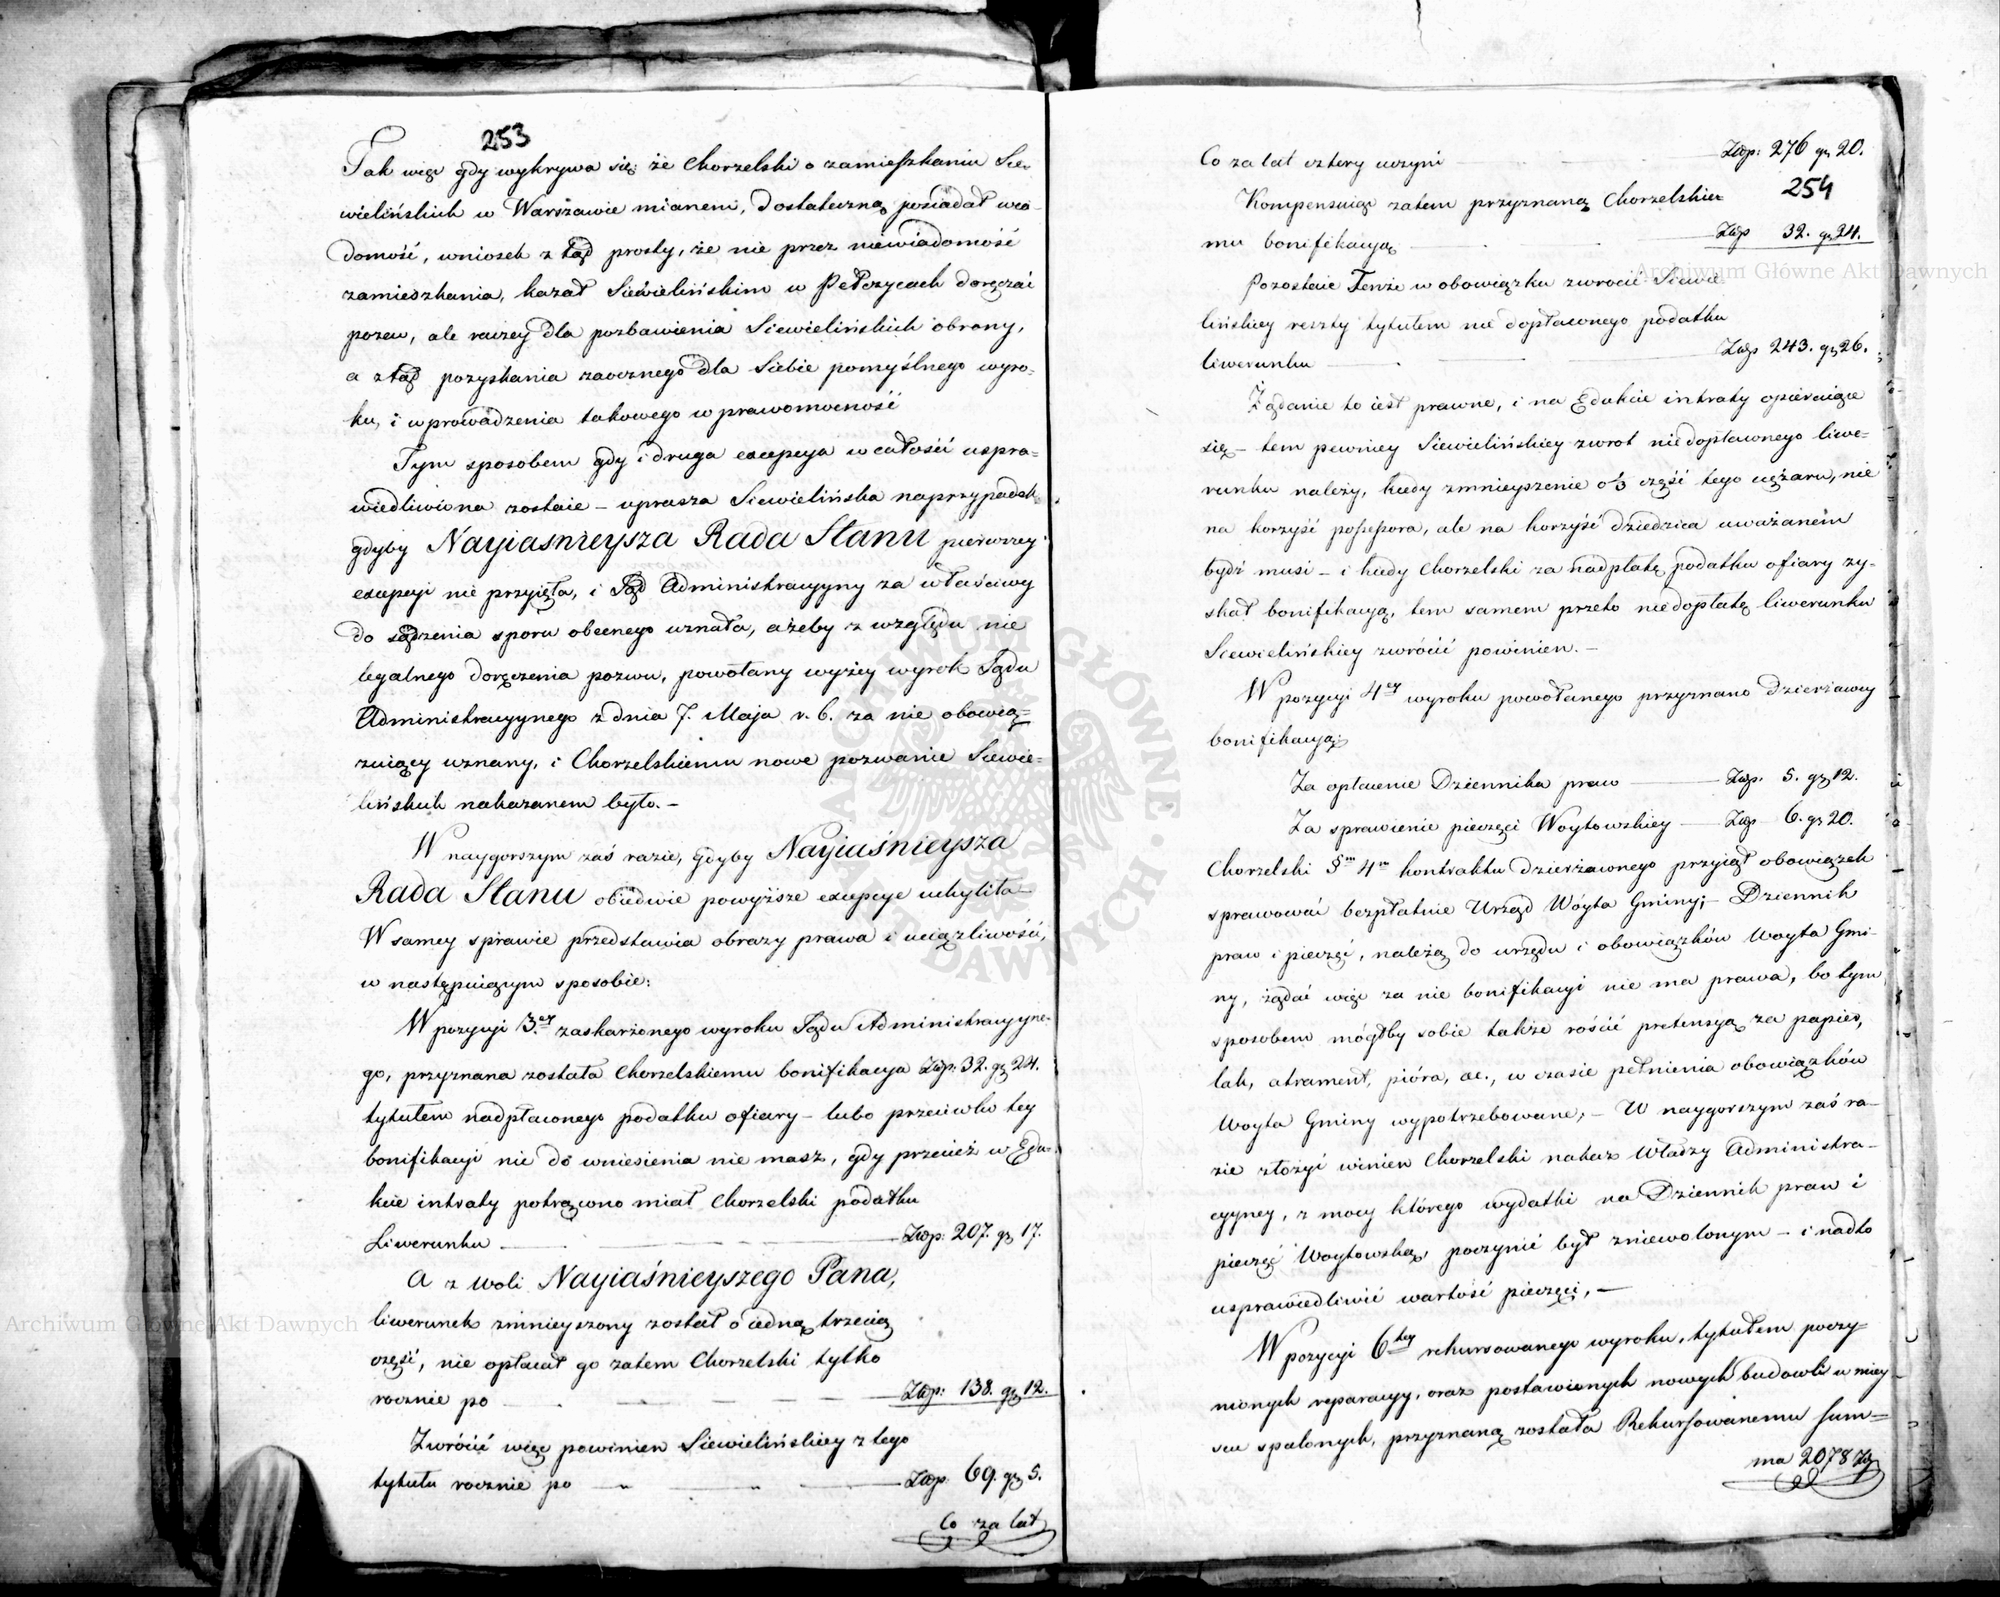 253
Tak więc gdy wykrywa się że Chorzelski o zamieszkaniu Sie-
wielińskich w Warszawie mianem, dostateczną posiadał wia-
domość, wniosek z tąd prosty, że nie przez niewiadomość
zamieszkania, kazał Siewielińskim w Pełczycach doręczać
pozew, ale raczey dla pozbawienia Siewielińskich obrony,
a z tąd pozyskania zaocznego dla Siebie pomyślnego wyro-
ku, i wprowadzenia takowego w prawomocność
Tym sposobem gdy i druga excepcya w całości uspra=
wiedliwiona zostaie – uprasza Siewielińska naprzypadek
gdyby Nayiaśnieysza Rada Stanu pierwszey
excepcyi nie przyięła, i Sąd Administracyyny za właściwy
do sądzenia sporu obecnego uznała, ażeby z względu nie
legalnego doręczenia pozwu, powołany wyżey wyrok Sądu
Administracyynego z dnia 7. Maja r. b. za nie obowią=
zuiący uznany, i Chorzelskiemu nowe pozwanie Siewie=
lińskich nakazanem było. –
W naygorszym zaś razie, gdyby Nayiaśnieysza
Rada Stanu obiedwie powyższe excepcye uchyliła –
W samey sprawie przedstawia obrazy prawa i uciążliwość,
w następuiącym sposobie:
W pozycyi 3.cy zaskarżonego wyroku Sądu Administracyyne-
go, przyznana została Chorzelskiemu bonifikacya Złp: 32. gr 24.
tytułem nadpłaconego podatku ofiary – lubo przeciwko tey
bonifikacyi nic do wniesienia nie masz, gdy przecież w Edu-
kcie intraty potrącono miał Chorzelski podatku
Liwerunku — Złp: 207. gr 17.
A z woli Nayiaśnieyszego Pana,
liwerunek zmnieyszony został o iedną trzecią
część, nie opłacał go zatem Chorzelski tylko
rocznie po — Złp: 138. gr 12.
Zwrócić więc powinien Siewielińskiey z tego
tytułu rocznie po — Złp. 69. gr 5.
Co za lat
Co za lat cztery uczyni — Złp: 276 gr 20.
254
Kompensuiąc zatem przyznaną Chorzelskie-
mu bonifikacyą — Złp 32. gr 24.
Pozostaie Tenże w obowiązku zwrócić Siewie-
lińskiey reszty tytułem nie dopłaconego podatku
liwerunku — Złp 243. gr 26.
Żądanie to iest prawne, i na Edukcie intraty opieraiące
się – tem pewniey Siewielińskiey zwrot niedopłaconego liwe=
runku należy, kiedy zmnieyszenie o ⅓ część tego ciężaru, nie
na korzyść possessora, ale na korzyść dziedzica uważanem
bydź musi – i kiedy Chorzelski za nadpłatę podatku ofiary zy-
skał bonifikacyą, tem samem przeto niedopłatę liwerunku
Siewielińskiey zwrócić powinien. –
W pozycyi 4.ey wyroku powołanego przyznano Dzierżawcy
bonifikacyą:
Za opłacenie Dziennika praw — Złp. 5. gr 12.
Za sprawienie pieczęci Woytowskiey — Złp 6. gr 20.
Chorzelski §m 4m kontraktu dzierżawnego przyiął obowiązek
sprawować bezpłatnie Urząd Wóyta Gminy; – Dziennik
praw i pieczęć, należą do urzędu i obowiązków Woyta Gmi-
ny, żądać więc za nie bonifikacyi nie ma prawa, bo tym
sposobem mógłby sobie także rościć pretensyą za papier,
lak, atrament, pióra, ac., w czasie pełnienia obowiązków
Woyta Gminy wypotrzebowane; – W naygorszym zaś ra-
zie złożyć winien Chorzelski nakaz Władzy Administra-
cyyney, z mocy którego wydatki na Dziennik praw i
pieczęć Woytowską, poczynić był zniewolonym – i nadto
usprawiedliwić wartość pieczęci, –
W pozycyi 6tey rekursowanego wyroku, tytułem poczy-
nionych reparacyy, oraz postawionych nowych budowli w miey
sce spalonych, przyznaną została Rekursowanemu sum=
ma 2078 Zł